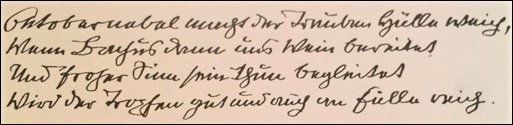 Oktobernebel macht der Trauben Hülle weich,
Wenn Bachus dann uns Wein bereitet
Und froher Sinn sein Thun begleitet
Wird der Tropfen gut und auch an Fülle reich.